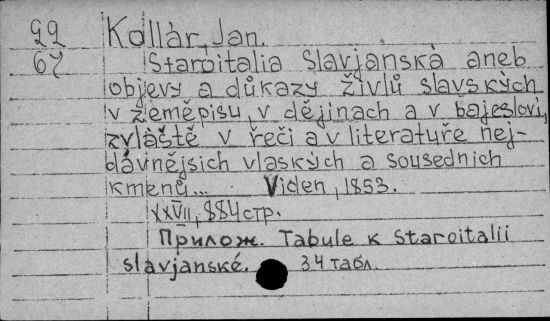 99 Kollár, Jan.
67 Staroitalia Slavjanská aneb
objevy a důkazy živlů slavských
v zeměpisu, v dějinach a v bajesloví,
zvláště v řeči a v literatuře nej-
dávnějsich vlaských a sousednich
kmenů... Viden, 1853.
XXVII, 884 стр.
Прилож. Tabule k Staroitalii
slavjanské. 34 табл.